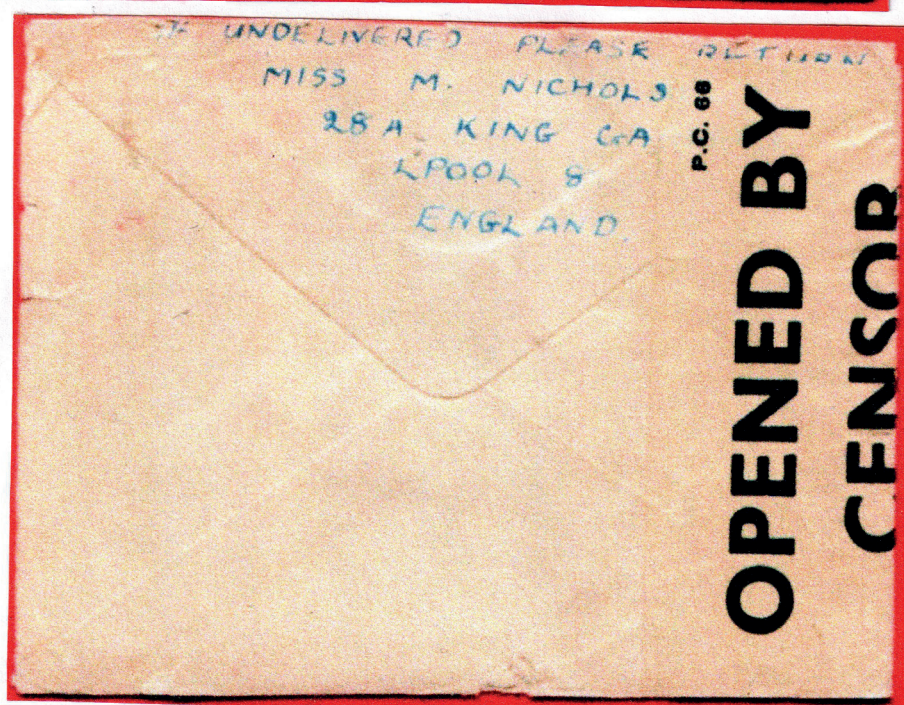 IF UNDELIVERED PLEASE RETURN
MISS M. NICHOLS
28A KING
LPOOL 8
ENGLAND.
P.C. 66
OPENED BY
CENSOR